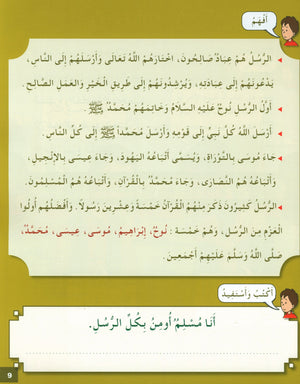 أَفْهَمُ
الرُّسُلُ هُمْ عِبَادٌ صَالِحُونَ، اخْتَارَهُمُ اللهُ تَعَالَى وَأَرْسَلَهُمْ إِلَى النَّاسِ،
يَدْعُونَهُمْ إِلَى عِبَادَتِهِ، وَيُرْشِدُونَهُمْ إِلَى طَرِيقِ الْخَيْرِ وَالْعَمَلِ الصَّالِحِ.
أَوَّلُ الرُّسُلِ نُوحٌ عَلَيْهِ السَّلَامُ وَخَاتِمُهُمْ مُحَمَّدٌ ﷺ.
أَرْسَلَ اللهُ كُلَّ نَبِيٍّ إِلَى قَوْمِهِ وَأَرْسَلَ مُحَمَّداً ﷺ إِلَى كُلِّ النَّاسِ.
جَاءَ مُوسَى بِالتَّوْرَاةِ، وَيُسَمَّى أَتْبَاعُهُ الْيَهُودَ، وَجَاءَ عِيسَى بِالْإِنْجِيلِ،
وَأَتْبَاعُهُ هُمُ النَّصَارَى، وَجَاءَ مُحَمَّدٌ بِالْقُرْآنِ، وَأَتْبَاعُهُ هُمُ الْمُسْلِمُونَ.
الرُّسُلُ كَثِيرُونَ ذَكَرَ مِنْهُمُ الْقُرْآنُ خَمْسَةً وَعِشْرِينَ رَسُولًا. وَأَفْضَلُهُمْ أُولُوا
الْعَزْمِ مِنَ الرُّسُلِ، وَهُمْ خَمْسَةٌ : نُوحٌ، إِبْرَاهِيمُ، مُوسَى، عِيسَى، مُحَمَّدٌ،
صَلَّى اللهُ وَسَلَّمَ عَلَيْهِمْ أَجْمَعِينَ.
أَكْتُبُ وَأَسْتَفِيدُ
أَنَا مُسْلِمٌ أُومِنُ بِكُلِّ الرُّسُلِ.
9